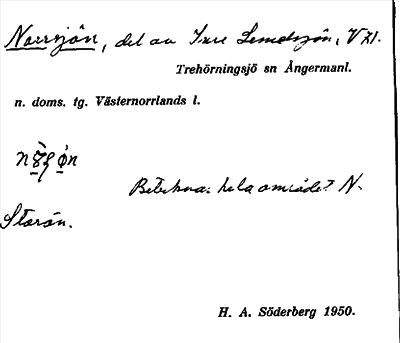 Norrsjön, del av Inre Lemesjön, VXI.
Trehörningsjö sn Ångermanl.
n. doms. tg. Västernorrlands l.
Betecknar hela området N.
Storön.
H. A. Söderberg 1950.